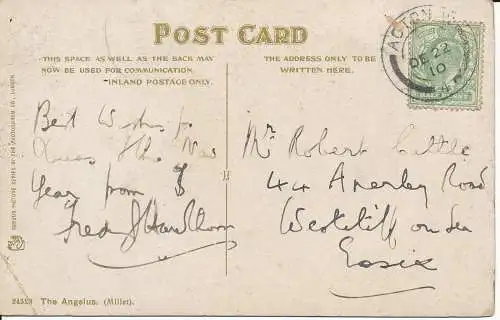 POST CARD
THIS SPACE AS WELL AS THE BACK MAY
NOW BE USED FOR COMMUNICATION.
INLAND POSTAGE ONLY.
THE ADDRESS ONLY TO BE
WRITTEN HERE.
ACTON
DE 22
10
Best Wishes for
Xmas & the New
Year from
Fred
Mr Robert Little
44 Anerley Road
Westcliff on Sea
Essex
24523 The Angelus. (Millet).